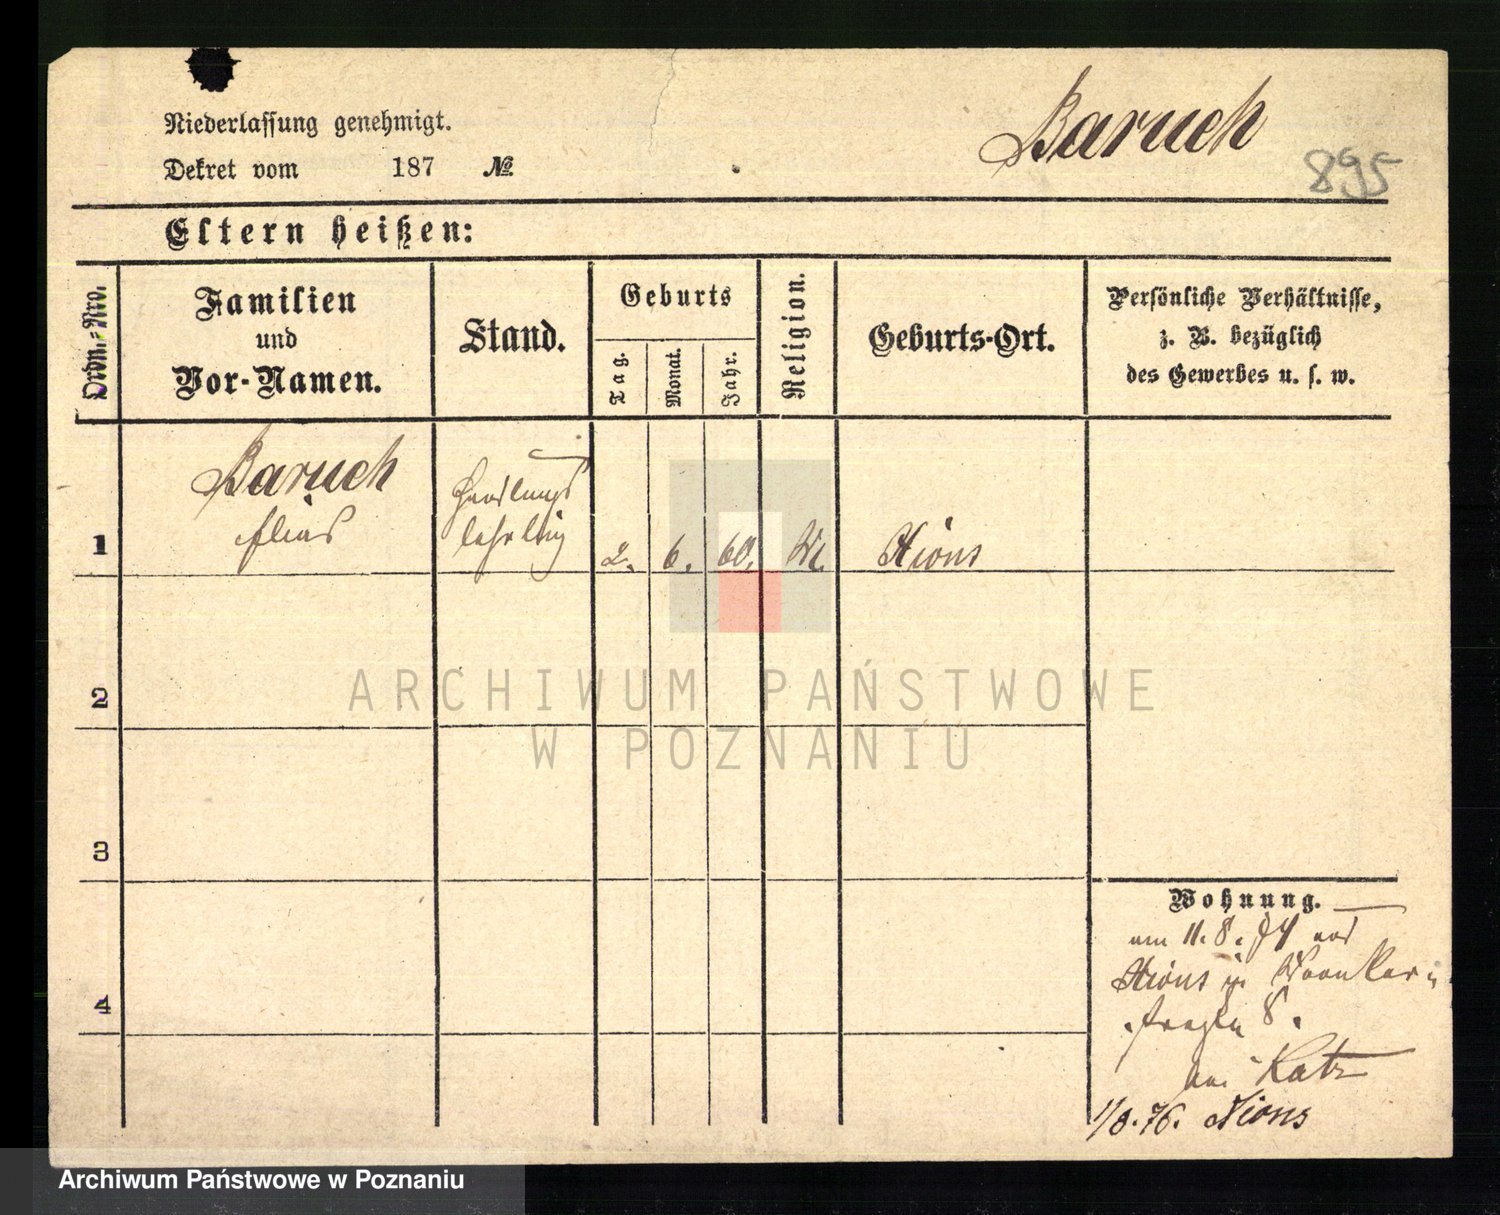 Niederlassung genehmigt.
Baruch
Dekret vom 187 №
895
Eltern heißen:
Ordn.-Nro.
Familien
und
Vor-Namen.
Stand.
Geburts
Tag.
Monat.
Jahr.
Religion.
Geburts-Ort.
Persönliche Verhältnisse,
z. B. bezüglich
des Gewerbes u. s. w.
Baruch
Elias
Handlungs
lehrling
1
2. 6. 60.
Xions
2
3
4
Wohnung.
am 11. 8. 74 aus
Xions
8.
bei Katz
1/8. 76. Xions
ARCHIWUM PAŃSTWOWE
W POZNANIU
Archiwum Państwowe w Poznaniu